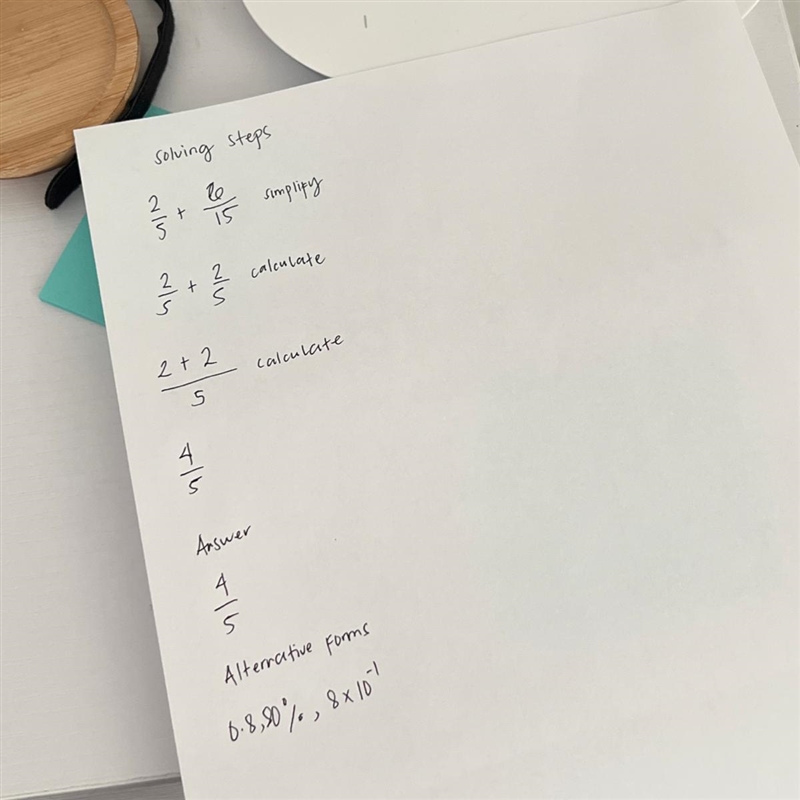 solving steps
2/5 + 6/15 simplify
2/5 + 2/5 calculate
2+2/5 calculate
4/5
Answer
4/5
Alternative Forms
0.8, 80%, 8×10⁻¹